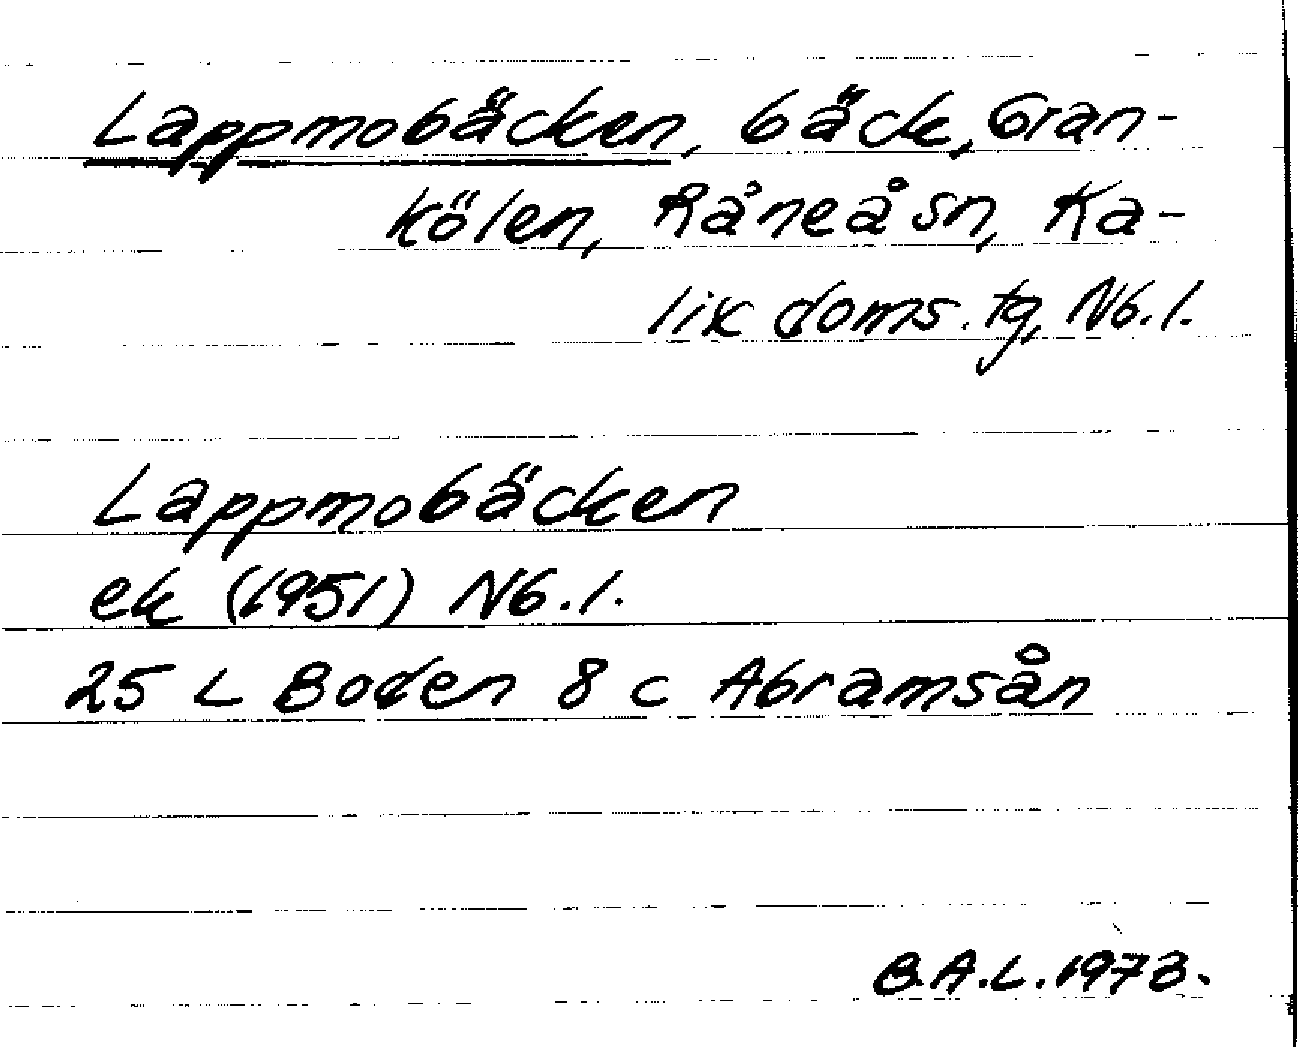 Lappmobäcken, bäck, Gran-
kölen, Råneå sn, Ka-
lix doms. tg, Nb. l.
Lappmobäcken
ek (1951) Nb. l.
25 L Boden 8 c Abramsån
B.A.L. 1973.